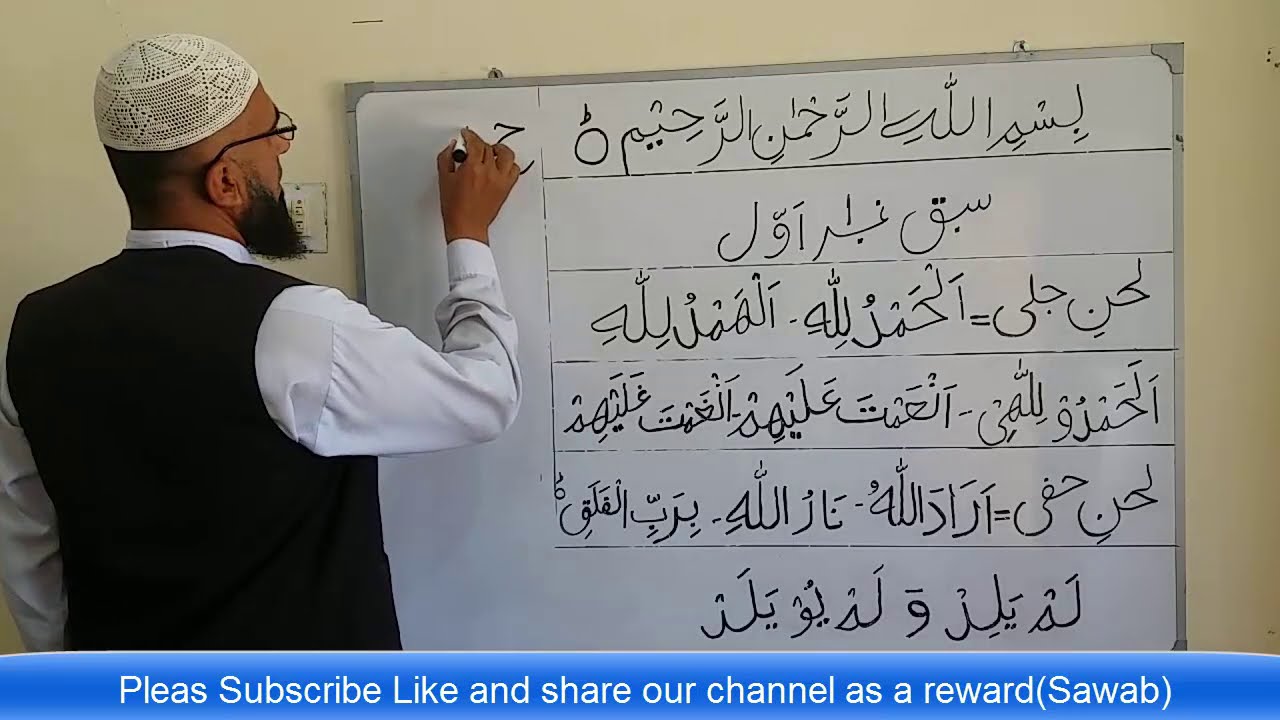 بِسْمِ اللّٰهِ الرَّحْمٰنِ الرَّحِيْمِ ○
سبق نمبر اَوّل
لحنِ جلی = اَلْحَمْدُ لِلّٰهِ - اَلْهَمْدُ لِلّٰهِ
اَلْحَمْدُوْ لِلّٰهِیْ - اَنْعَمْتَ عَلَيْهِمْ - اَنْغَمْتَ غَلَيْهِمْ
لحنِ حفی = اَرَادَ اللّٰهُ - نَارُ اللّٰهِ - بِرَبِّ الْفَلَقِ
لَمْ يَلِدْ وَ لَمْ يُوْيَلَدْ
Pleas Subscribe Like and share our channel as a reward(Sawab)